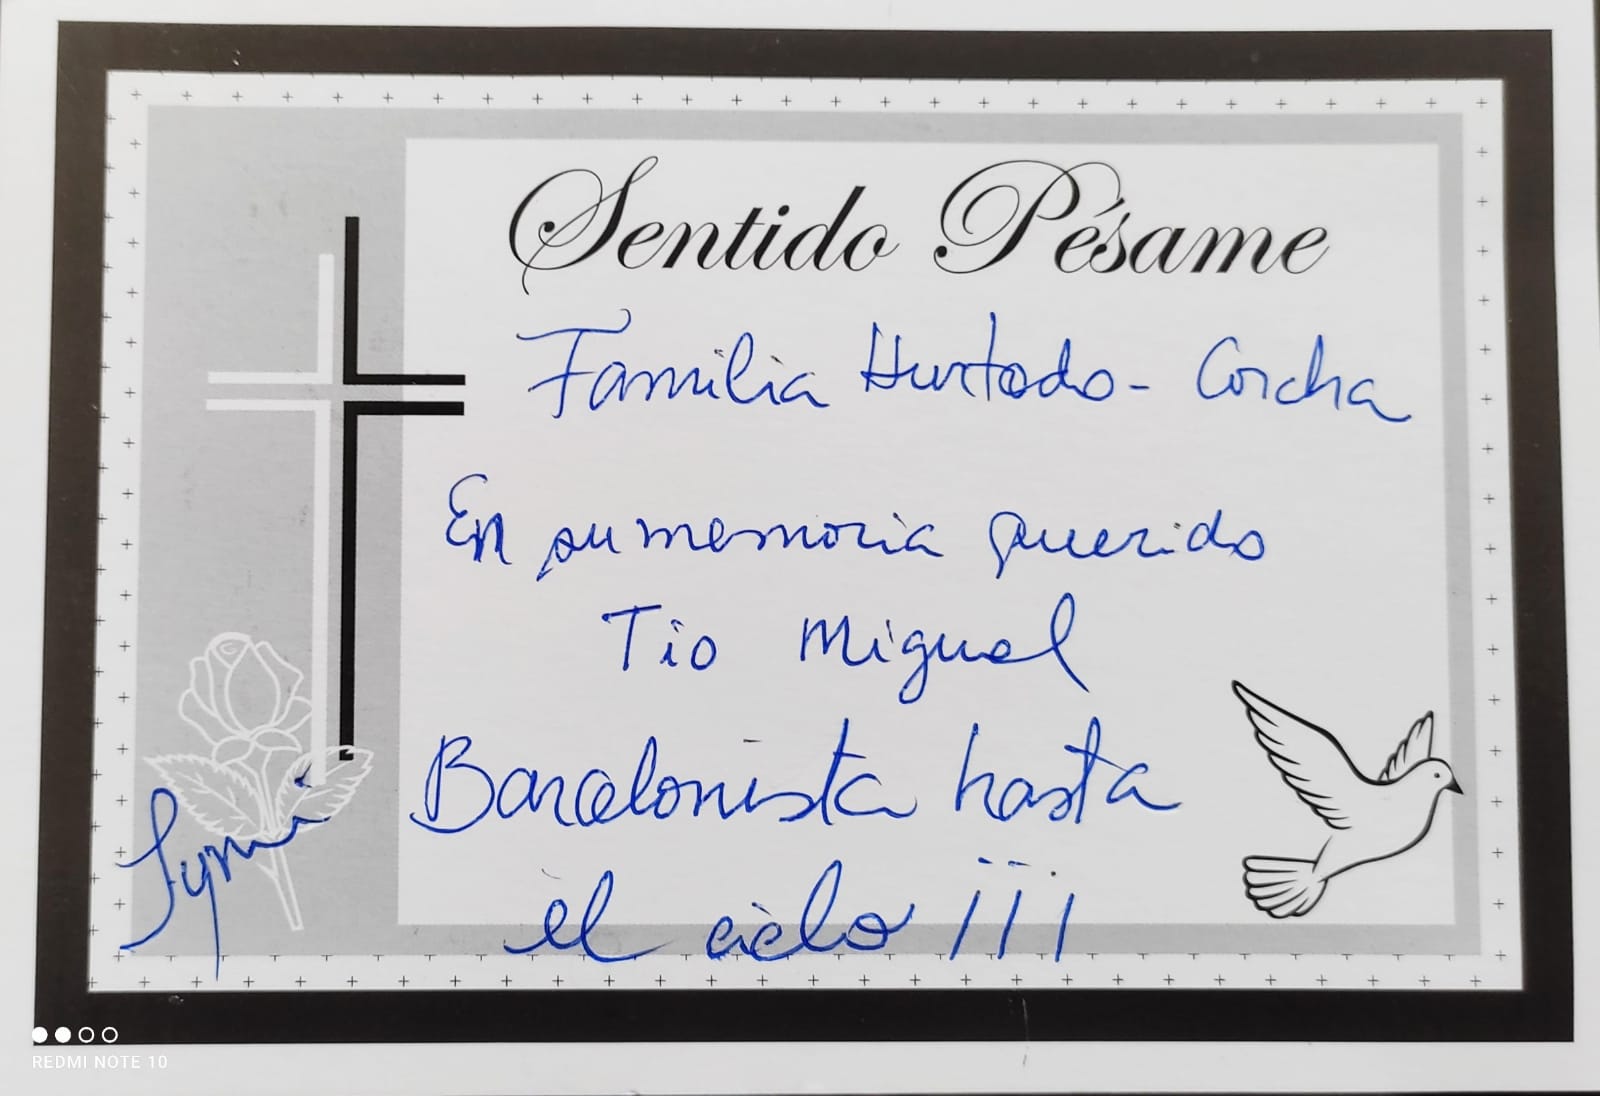 Sentido Pésame
Familia Hurtado - Corcha
En su memoria querido
Tio Miguel
Barcelonista hasta
el cielo ¡¡¡
REDMI NOTE 10